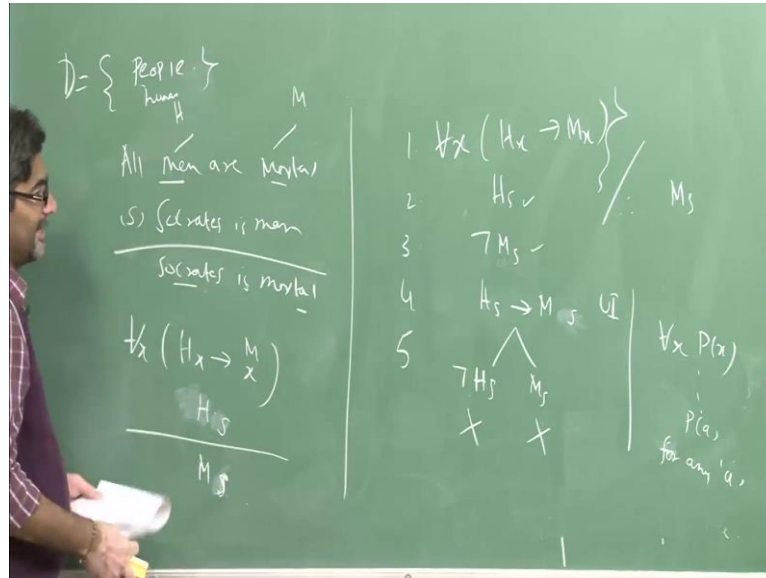 D = { People }
human
H M
All men are Mortal
(S) Socrates is men
Socrates is mortal
∀x ( Hx → Mx )
Hs
Ms
1 ∀x ( Hx → Mx ) }
2. Hs ✓ / ∴ Ms
3 ¬Ms ✓
4 Hs → Ms UI
5
¬Hs Ms
X X
∀x P(x)
⋮
P(a,
for any 'a,